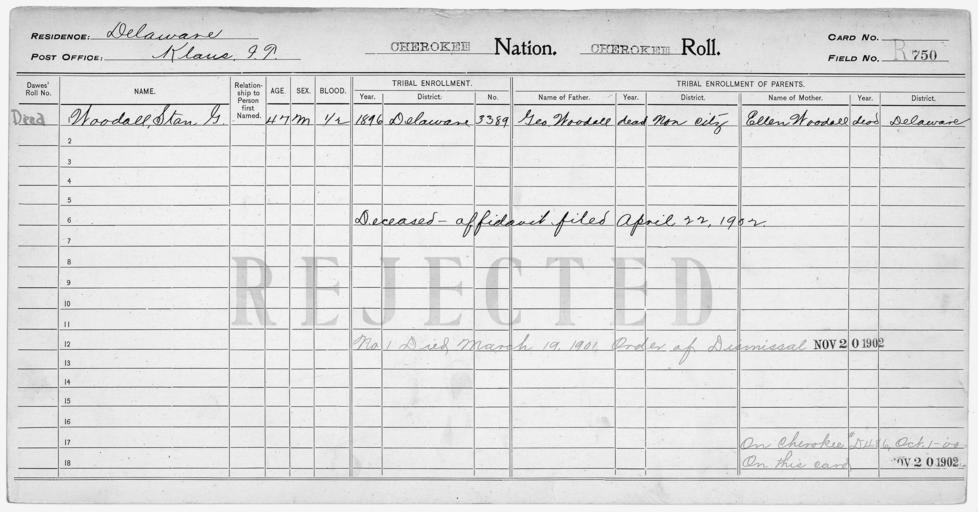 RESIDENCE: Delaware
POST OFFICE: Klaus, I.T.
CHEROKEE Nation. CHEROKEE Roll.
CARD NO.
FIELD NO. R 750
Dawes' Roll No. NAME. Relationship to Person first Named. AGE. SEX. BLOOD. TRIBAL ENROLLMENT. TRIBAL ENROLLMENT OF PARENTS.
Year. District. No. Name of Father. Year. District. Name of Mother. Year. District.
Dead Woodall, Stan G. 47 M 1/2 1896 Delaware 3389 Geo Woodall dead Non City Ellen Woodall dead Delaware
2
3
4
5
6 Deceased - affidavit filed April 22, 1902.
7
8
9
REJECTED
10
11
12 No 1 Died March 19, 1901 Order of Dismissal NOV 20 1902
13
14
15
16
17 On Cherokee "D 486, Oct. 1-00
18 On this card NOV 20 1902